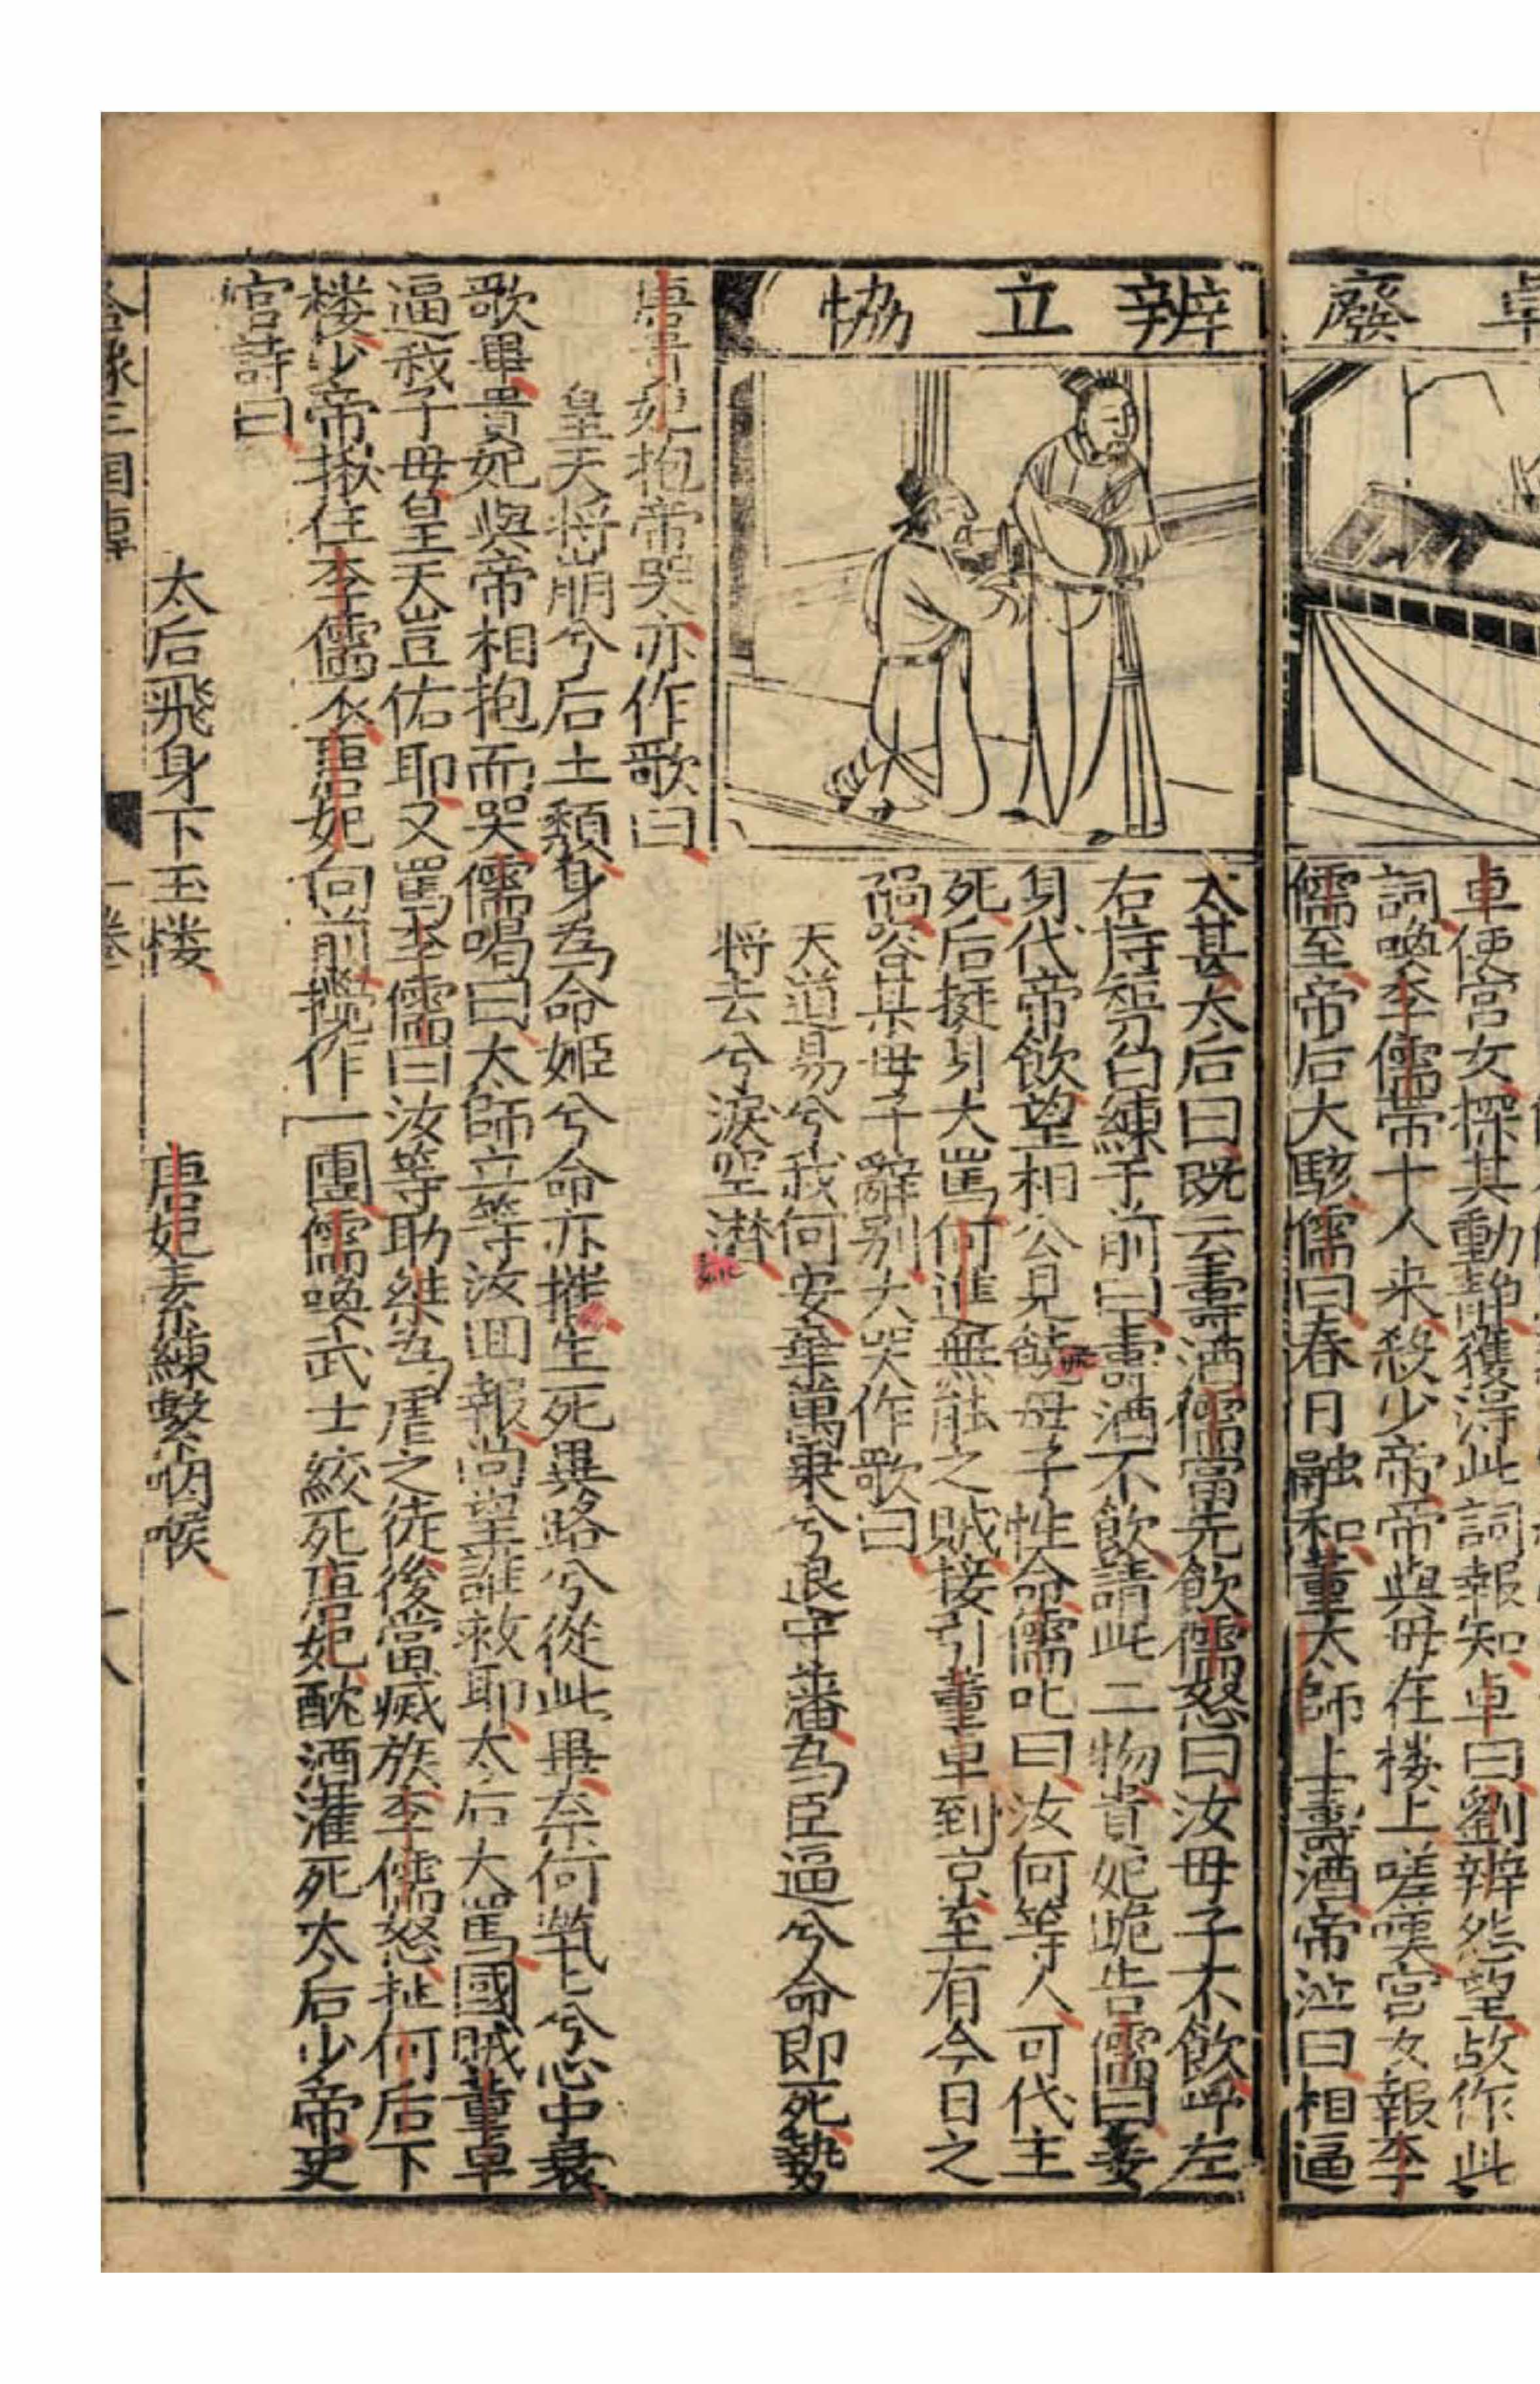 卓廢
辨立協
卓便宮女探其動静獲得此詞報知卓曰劉辨怨望故作此
詞喚李儒帶十人来殺少帝帝與母在楼上嗟嘆宮女報李
儒至帝后大駭儒曰春日融和董太師上壽酒帝泣曰相逼
太甚太后曰既云壽酒儒當先飲儒怒曰汝母子不飲呼左
右持短刀白練于前曰壽酒不飲請此二物貴妃跪告儒曰妾
身代帝飲望相公見饒母子性命儒叱曰汝何等人可代主
死后挺身大罵何進無能之賊接引董卓到京至有今日之
禍谷某母子辭別大哭作歌曰
天道易兮我何安棄萬乗兮退守藩為臣逼兮命即死勢
将去兮淚空潜
唐貴妃抱帝哭亦作歌曰
皇天将崩兮后土頽身為命姬兮命亦摧生死異路兮從此畢奈何煢七兮心中哀
歌畢貴妃與帝相抱而哭儒喝曰太師立等汝回報尚望誰救耶太后大罵國賊董卓
逼我子母皇天豈佑耶又罵李儒曰汝等助桀為虐之徒後當滅族李儒怒扯何后下
楼少帝揪住李儒衣唐妃向前攪作一團儒喚武士絞死唐妃酖酒灌死太后少帝史
官詩曰
太后飛身下玉楼　唐妃素練繫咽喉
三国傳　一卷　十八